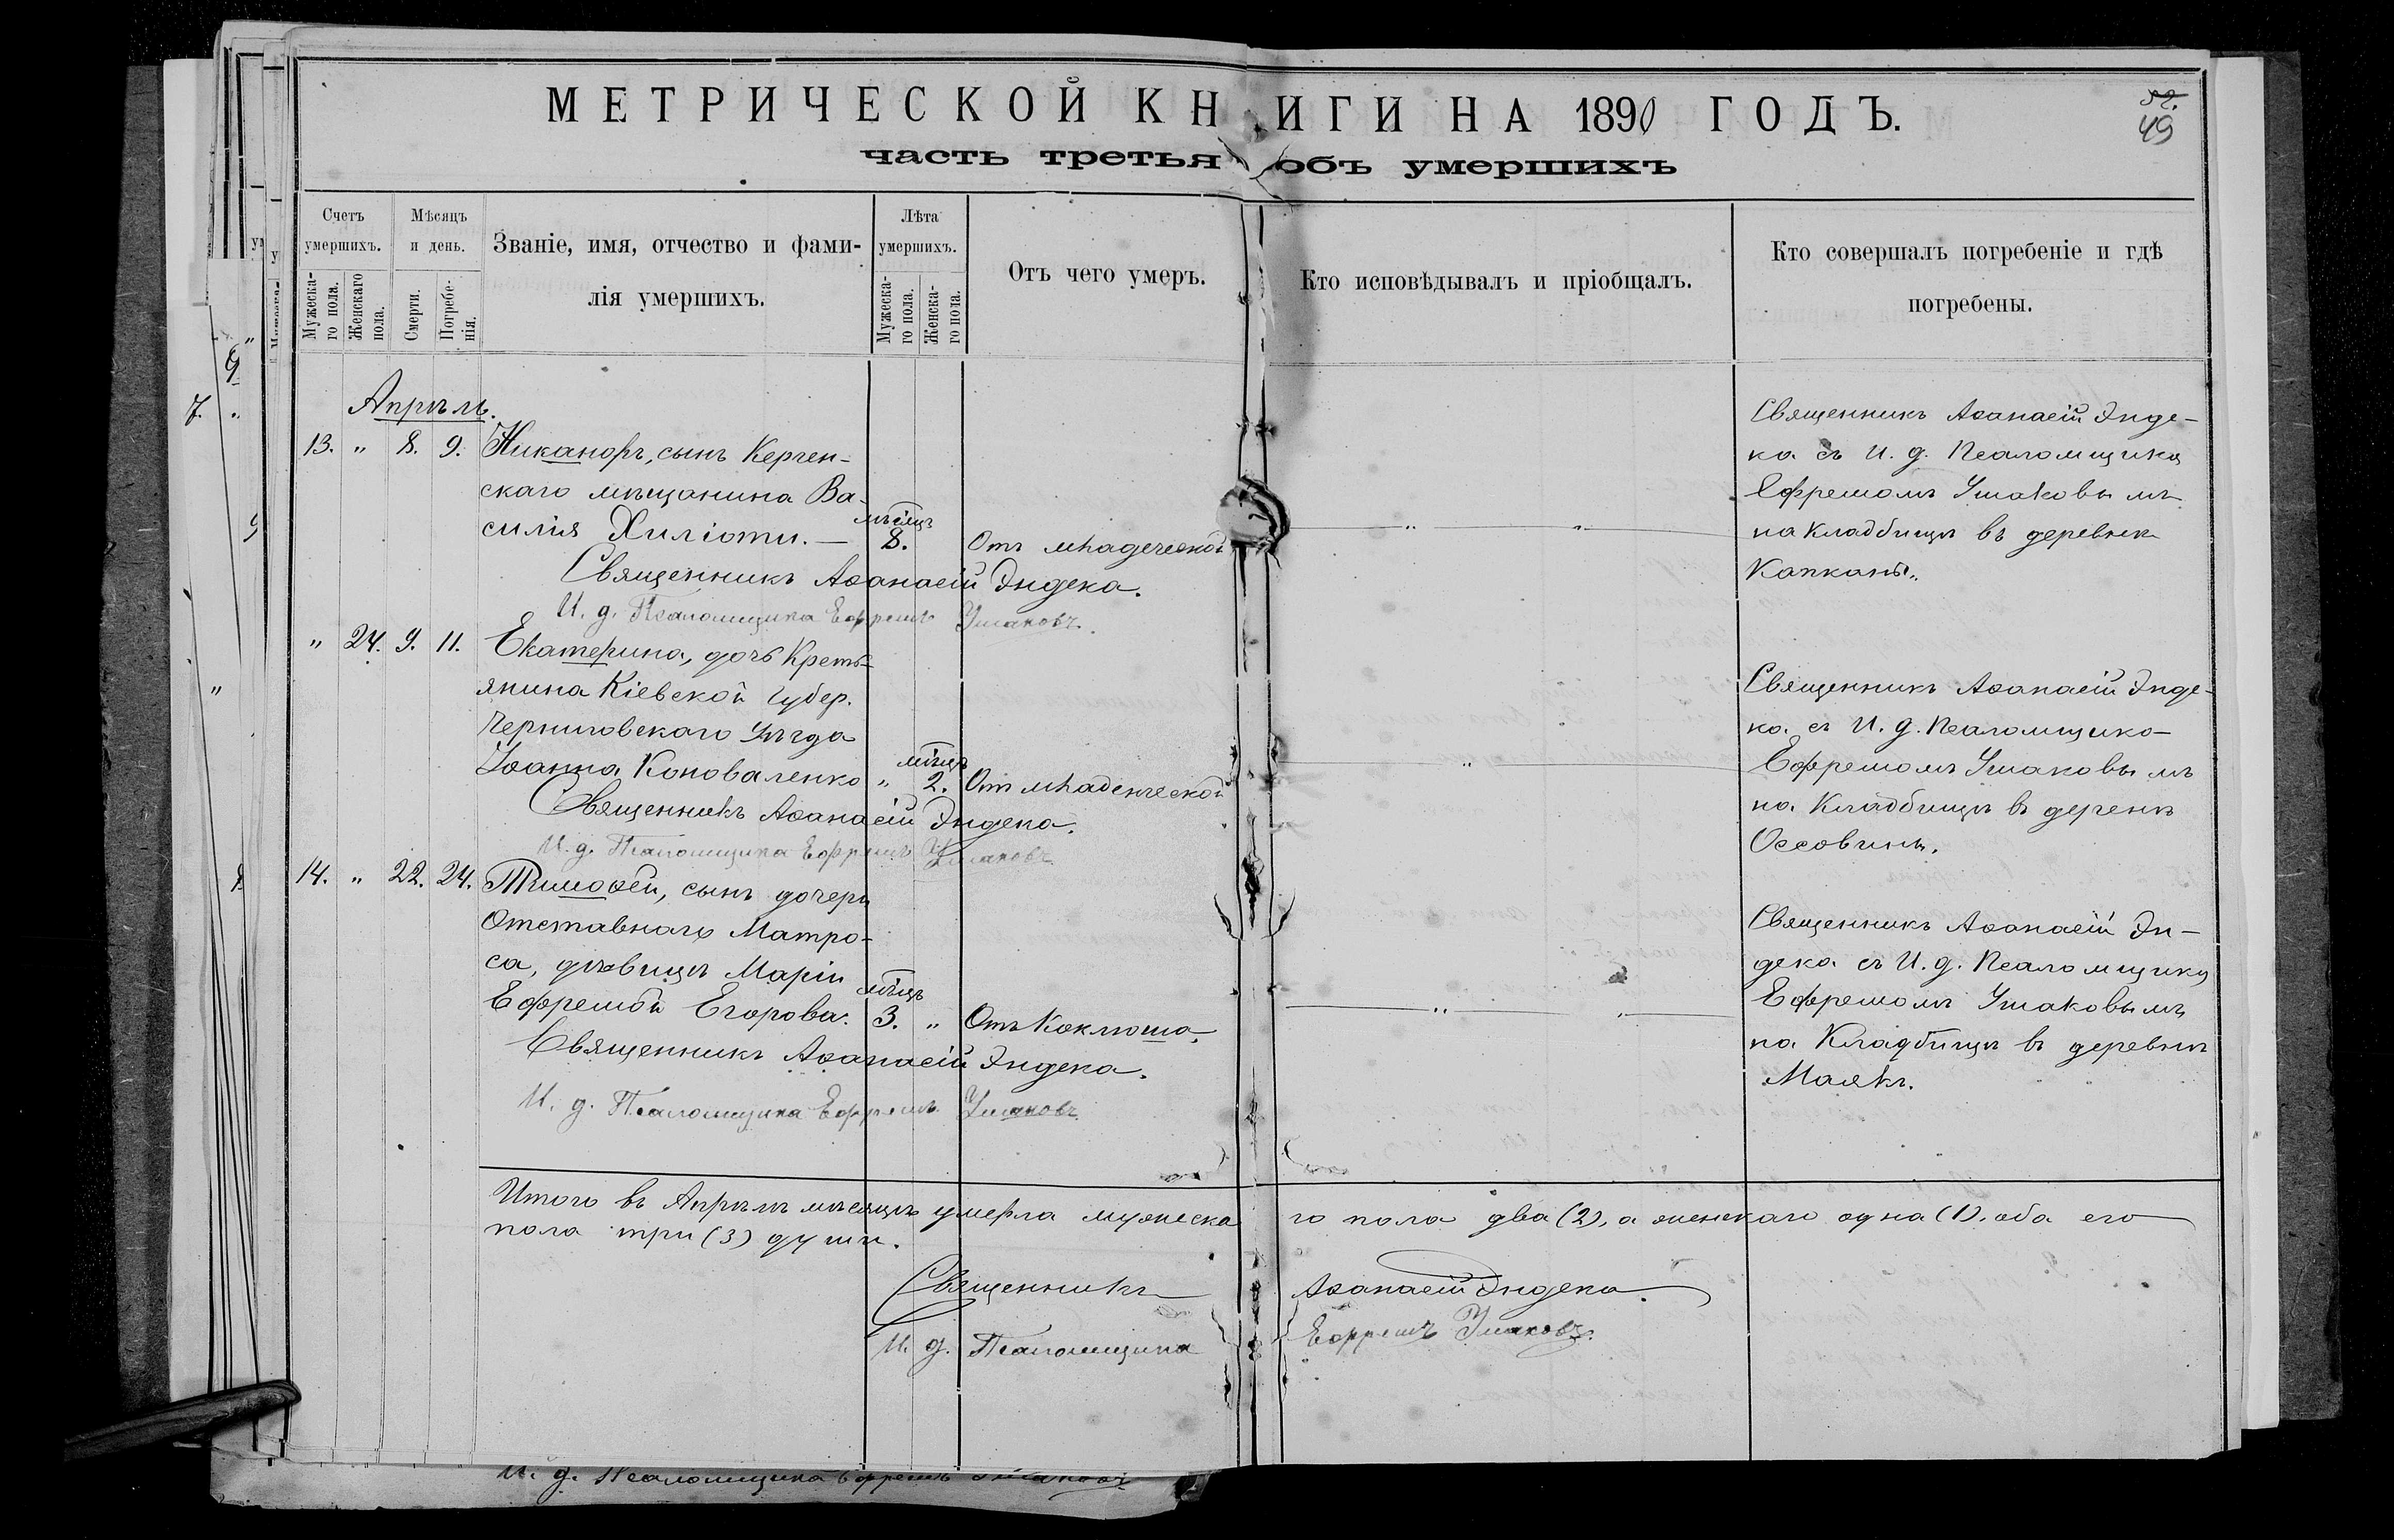 МЕТРИЧЕСКОЙ КНИГИ НА 1890 ГОДЪ.
52.
49
часть третья объ умершихъ
Счетъ умершихъ.
Мужеска-го пола.
Женскаго пола.
Мѣсяцъ и день.
Смерти.
Погребе-нія.
Званіе, имя, отчество и фами-
лія умершихъ.
Лѣта умершихъ.
Мужеска-го пола.
Женска-го пола.
Отъ чего умеръ.
Кто исповѣдывалъ и пріобщалъ.
Кто совершалъ погребеніе и гдѣ
погребены.
Апрѣль.
13. " 8. 9. Никаноръ, сынъ Керчен-
скаго мѣщанина Ва-
силія Хиліоти. — мѣсяцъ 8. Отъ младеческой
Священникъ Аѳанасій Эндека.
И. д. Псаломщика Ефремъ Ушаковъ.
Священникъ Аѳанасій Энде-
ка съ И. д. Псаломщика
Ефремомъ Ушаковымъ
на кладбищѣ въ деревнѣ
Капканы.
" 24. 9. 11. Екатерина, дочь Кресть-
янина Кіевской Губер.
Черниговскаго Уѣзда
Іоанна Коноваленко " мѣсцъ 2. Отъ младенческой
Священникъ Аѳанасій Эндека.
И. д. Псаломщика Ефремъ Ушаковъ
Священникъ Аѳанасій Энде-
ка съ И. д. Псаломщика
Ефремомъ Ушаковымъ
на Кладбищѣ въ деренѣ
Оссовины.
14. " 22. 24. Тимоѳей, сынъ дочери
Отставнаго Матро-
са, дѣвицы Маріи
Ефремовй Егорова. мѣсцъ 3. " Отъ Коклюша.
Священникъ Аѳанасій Эндека.
И. д. Псаломщика Ефремъ Ушаковъ
Священникъ Аѳанасій Эн-
дека съ И. д. Псаломщика
Ефремомъ Ушаковымъ
на Кладбищѣ въ деревнѣ
Маякъ.
Итого въ Апрѣлѣ мѣсяцѣ умерла мужеска го пола два (2), а женскаго одна (1), оба его
пола три (3) души.
Священникъ Аѳанасій Эндека.
И. д. Псаломщика Ефремъ Ушаковъ.
И. д. Псаломщика Ефремъ Ушаковъ